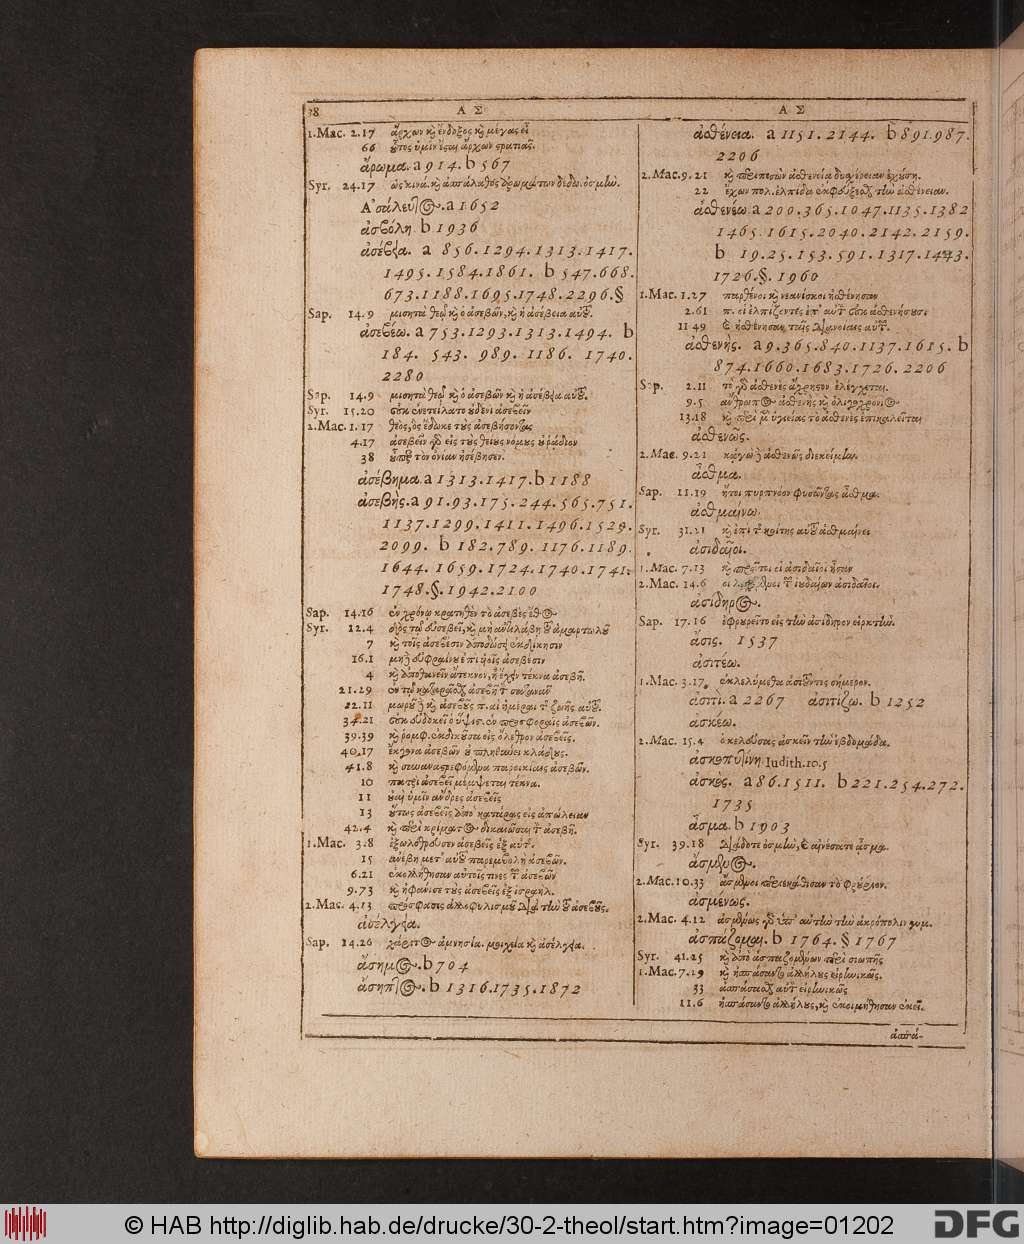 38 ΑΣ ΑΣ
1.Mac. 2.17 ἄρχων καὶ ἔνδοξος καὶ μέγας εἶ
66 οὗτος ὑμῖν ἔσται ἄρχων στρατιᾶς.
ἄρωμα. a 914. b 567
Syr. 24.17 ὡς κινά. καὶ ἀσπάλαθος ἀρωμάτων δέδω. ὀσμίω.
Ἀσάλευτος. a 1652
ἀσβόλη b 1936
ἀσέβεια. a 856. 1294. 1313. 1417.
1495. 1584. 1861. b 547. 668.
673. 1188. 1695. 1748. 2296. §
Sap. 14.9 μισητὰ θεῷ καὶ ὁ ἀσεβῶν, καὶ ἡ ἀσέβεια αὐτοῦ.
ἀσεβέω. a 753. 1293. 1313. 1494. b
184. 543. 989. 1186. 1740.
2280
Sap. 14.9 μισητὰ θεῷ καὶ ὁ ἀσεβῶν καὶ ἡ ἀσέβεια αὐτοῦ.
Syr. 15.20 οὐκ ἐνετείλατο οὐδενὶ ἀσεβεῖν
2.Mac. 1.17 θεὸς, ὃς ἔδωκε τοὺς ἀσεβήσαντας
4.17 ἀσεβεῖν γὰρ εἰς τοὺς θείους νόμους οὐ ῥᾴδιον
38 εἰς τὸν ὀνίαν ἠσέβησεν.
ἀσέβημα. a 1313. 1417. b 1188
ἀσεβὴς. a 91. 93. 175. 244. 565. 751.
1137. 1299. 1411. 1496. 1529.
2099. b 182. 789. 1176. 1189.
1644. 1659. 1724. 1740. 1741.
1748. §. 1942. 2100
Sap. 14.16 ἐν χρόνῳ κρατηθὲν τὸ ἀσεβὲς ἔθος
Syr. 12.4 δὸς τῷ εὐσεβεῖ, καὶ μὴ ἀντιλάβῃ τοῦ ἁμαρτωλοῦ
7 καὶ τοῖς ἀσεβέσιν ἀποδώσει ἐκδίκησιν
16.1 μηδὲ εὐφραίνου ἐπὶ υἱοῖς ἀσεβέσιν
4 καὶ ἀποθανεῖν ἄτεκνον, ἢ ἔχειν τέκνα ἀσεβῆ.
21.29 ἐν τῷ καταρᾶσθαι ἀσεβῆ τὸν σατανᾶν
22.11 μωροῦ δὲ καὶ ἀσεβοῦς π. αἱ ἡμέραι τῆς ζωῆς αὐτοῦ.
34.21 οὐκ εὐδοκεῖ ὁ ὕψισ. ἐν προσφοραῖς ἀσεβῶν.
39.39 καὶ ῥομφ. ἐκδικοῦσα εἰς ὄλεθρον ἀσεβεῖς.
40.17 ἔκγονα ἀσεβῶν οὐ πληθύνει κλάδους.
41.8 καὶ συναναστρεφόμενα παροικίαις ἀσεβῶν.
10 πατρὶ ἀσεβεῖ μέμψεται τέκνα.
11 οὐαὶ ὑμῖν ἄνδρες ἀσεβεῖς
13 οὕτως ἀσεβεῖς ἀπὸ κατάρας εἰς ἀπώλειαν
42.4 καὶ περὶ κρίματος δικαιῶσαι τὸν ἀσεβῆ.
1.Mac. 3.8 ἐξωλόθρευσεν ἀσεβεῖς ἐξ αὐτῆς.
15 ἀνέβη μετ' αὐτοῦ παρεμβολὴ ἀσεβῶν.
6.21 ἐκολλήθησαν αὐτοῖς τινες τῶν ἀσεβῶν
9.73 καὶ ἠφάνισε τοὺς ἀσεβεῖς ἐξ ἰσραήλ.
2.Mac. 4.13 ἀλλοφυλισμοῦ διὰ τὴν τοῦ ἀσεβοῦς.
ἀσέλγεια.
Sap. 14.26 χάριτος ἀμνησία. μοιχεία καὶ ἀσέλγεια.
ἄσημος. b 704
ἄσηπτος. b 1316. 1735. 1872
ἀσθένεια. a 1151. 2144. b 891. 987.
2206
2.Mac. 9.21 καὶ περιπεσὼν ἀσθενείᾳ δυσχέρειαν ἐχούσῃ.
22 ἔχων πολ. ἐλπίδα ἐκφεύξεσθαι τὴν ἀσθένειαν.
ἀσθενέω. a 200. 365. 1047. 1135. 1382
1465. 1615. 2040. 2142. 2159.
b 19. 25. 153. 591. 1317. 1443.
1726. §. 1960
1.Mac. 1.27 παρθένοι καὶ νεανίσκοι ἠσθένησαν
2.61 π. οἱ ἐλπίζοντες ἐπ' αὐτὸν οὐκ ἀσθενήσουσι
11 49 καὶ ἠσθένησαν ταῖς διανοίαις αὐτῶν.
ἀσθενής. a 9. 365. 840. 1137. 1615. b
874. 1660. 1683. 1726. 2206
Sap. 2.11 τὸ γὰρ ἀσθενὲς ἄχρηστον ἐλέγχεται.
9.5 ἄνθρωπος ἀσθενὴς καὶ ὀλιγοχρόνιος
13.18 καὶ περὶ μὲν ὑγιείας τὸ ἀσθενὲς ἐπικαλεῖται
ἀσθενῶς.
2.Mac. 9.21 κἀγὼ δὲ ἀσθενῶς διεκείμην.
ἆσθμα.
Sap. 11.19 ἤτοι πυρπνόον φυσῶντας ἆσθμα.
ἀσθμαίνω.
Syr. 31.21 καὶ ἐπὶ τῆς κοίτης αὐτοῦ ἀσθμαίνει
ἀσιδαῖοι.
1.Mac. 7.13 καὶ πρῶτοι οἱ ἀσιδαῖοι ἦσαν
2.Mac. 14.6 οἱ λεγόμενοι τῶν ἰουδαίων ἀσιδαῖοι.
ἀσίδηρος.
Sap. 17.16 ἐφρουρεῖτο εἰς τὴν ἀσίδηρον εἱρκτήν.
ἄσις. 1537
ἀσιτέω.
1.Mac. 3.17. ἐκλελύμεθα ἀσιτοῦντες σήμερον.
ἀσιτί. a 2267 ἀσιτίζω. b 1252
ἀσκέω.
2.Mac. 15.4 ὁ κελεύσας ἀσκεῖν τὴν ἑβδομάδα.
ἀσκοπυτίνη. Iudith. 10.5
ἀσκός. a 86. 1511. b 221. 254. 272.
1735
ᾆσμα. b 1903
Syr. 39.18 διάδοτε ὀσμὴν, καὶ αἰνέσατε ᾆσμα.
ἄσμενος.
2.Mac. 10.33 ἄσμενοι περιεκάθισαν τὸ φρούριον.
ἀσμένως.
2.Mac. 4.12 ἀσμένως γὰρ ὑπ' αὐτὴν τὴν ἀκρόπολιν γυμ.
ἀσπάζομαι. b 1764. § 1767
Syr. 41.25 καὶ ἀπὸ ἀσπαζομένων περὶ σιωπῆς
1.Mac. 7.29 καὶ ἠσπάσαντο ἀλλήλους εἰρηνικῶς.
33 ἀσπάσασθαι αὐτὸν εἰρηνικῶς
11.6 ἠσπάσαντο ἀλλήλους, καὶ ἐκοιμήθησαν ἐκεῖ.
ἀσπά-
© HAB http://diglib.hab.de/drucke/30-2-theol/start.htm?image=01202
DFG